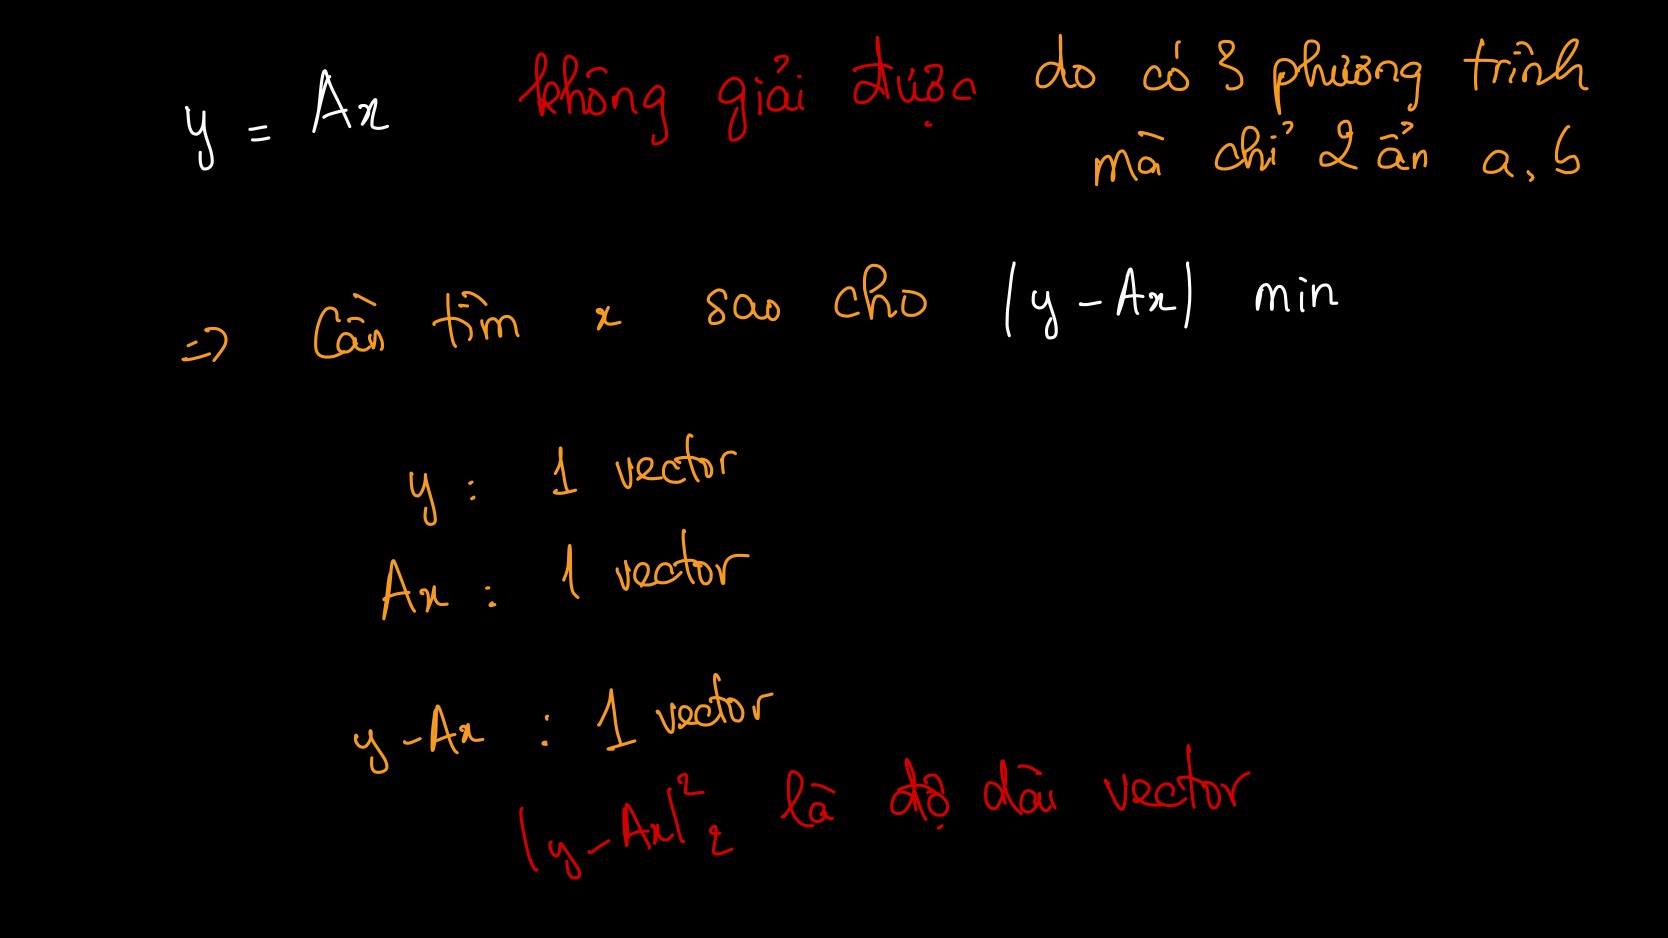 y = Ax không giải được do có 3 phương trình
mà chỉ 2 ẩn a, b
=> Cần tìm x sao cho |y - Ax| min
y : 1 vector
Ax : 1 vector
y - Ax : 1 vector
|y - Ax|²₂ là độ dài vector